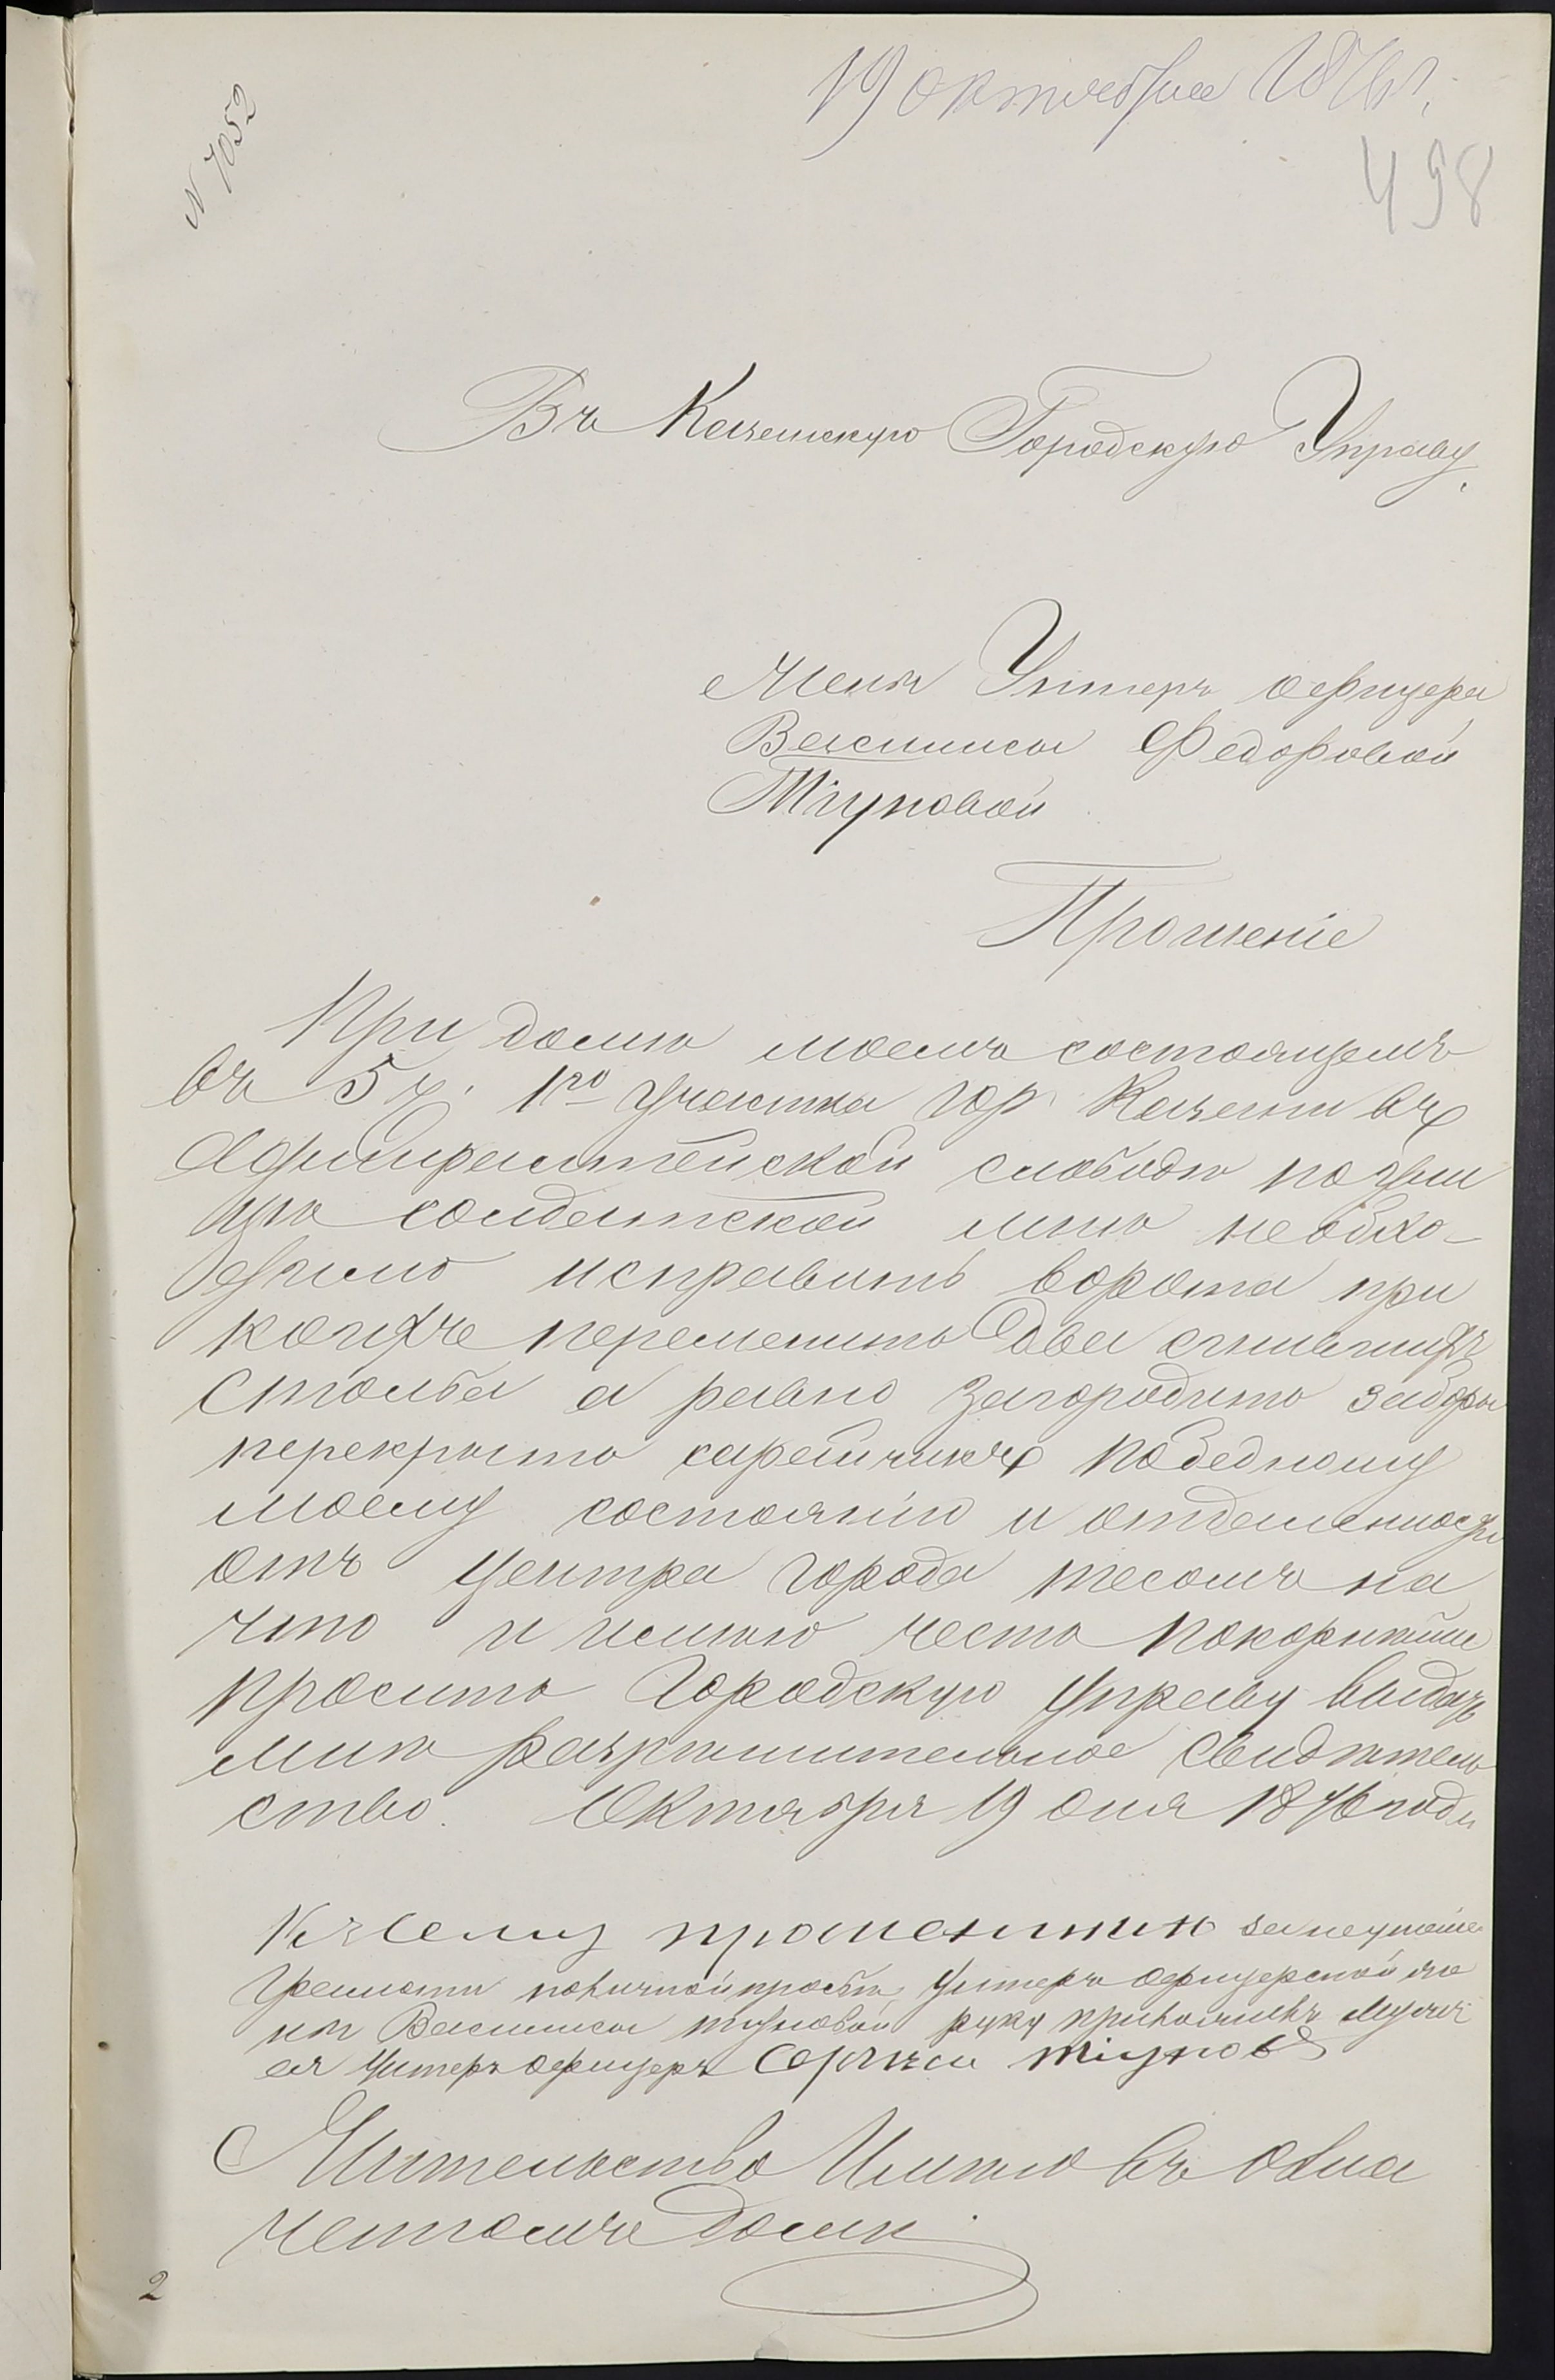 19 октября 1876 г.
N 7052
498
Въ Казанскую Городскую Управу.
Жены Унтеръ офицера
Василисы Федоровой
Тіуновой
Прошеніе
При домѣ моемъ состоящемъ
въ 5 ч. 1го участка гор. Казани въ
Адмиралтейской слободѣ по ули
цѣ солдатской мнѣ необхо-
димо исправить ворота при
коихъ переменить два сгнившихъ
столба а равно загородить заборы
перекрыть сарайчикъ по бедному
моему состоянію и отдаленности
отъ центра города тесомъ на
что и имѣю честь покорнѣйше
просить Городскую Управу выдать
мнѣ разрѣшительное свидѣтель
ство. Октября 19 дня 1876 года
Къ сему прошенію за неумѣніе
грамоты по личной просьбѣ Унтеръ офицерской же
ны Василисы Тіуновой руку приложилъ мужъ
ея Унтеръ офицеръ Сергѣй Тіуновъ
Жительство Имѣю въ озна
ченномъ доме
2